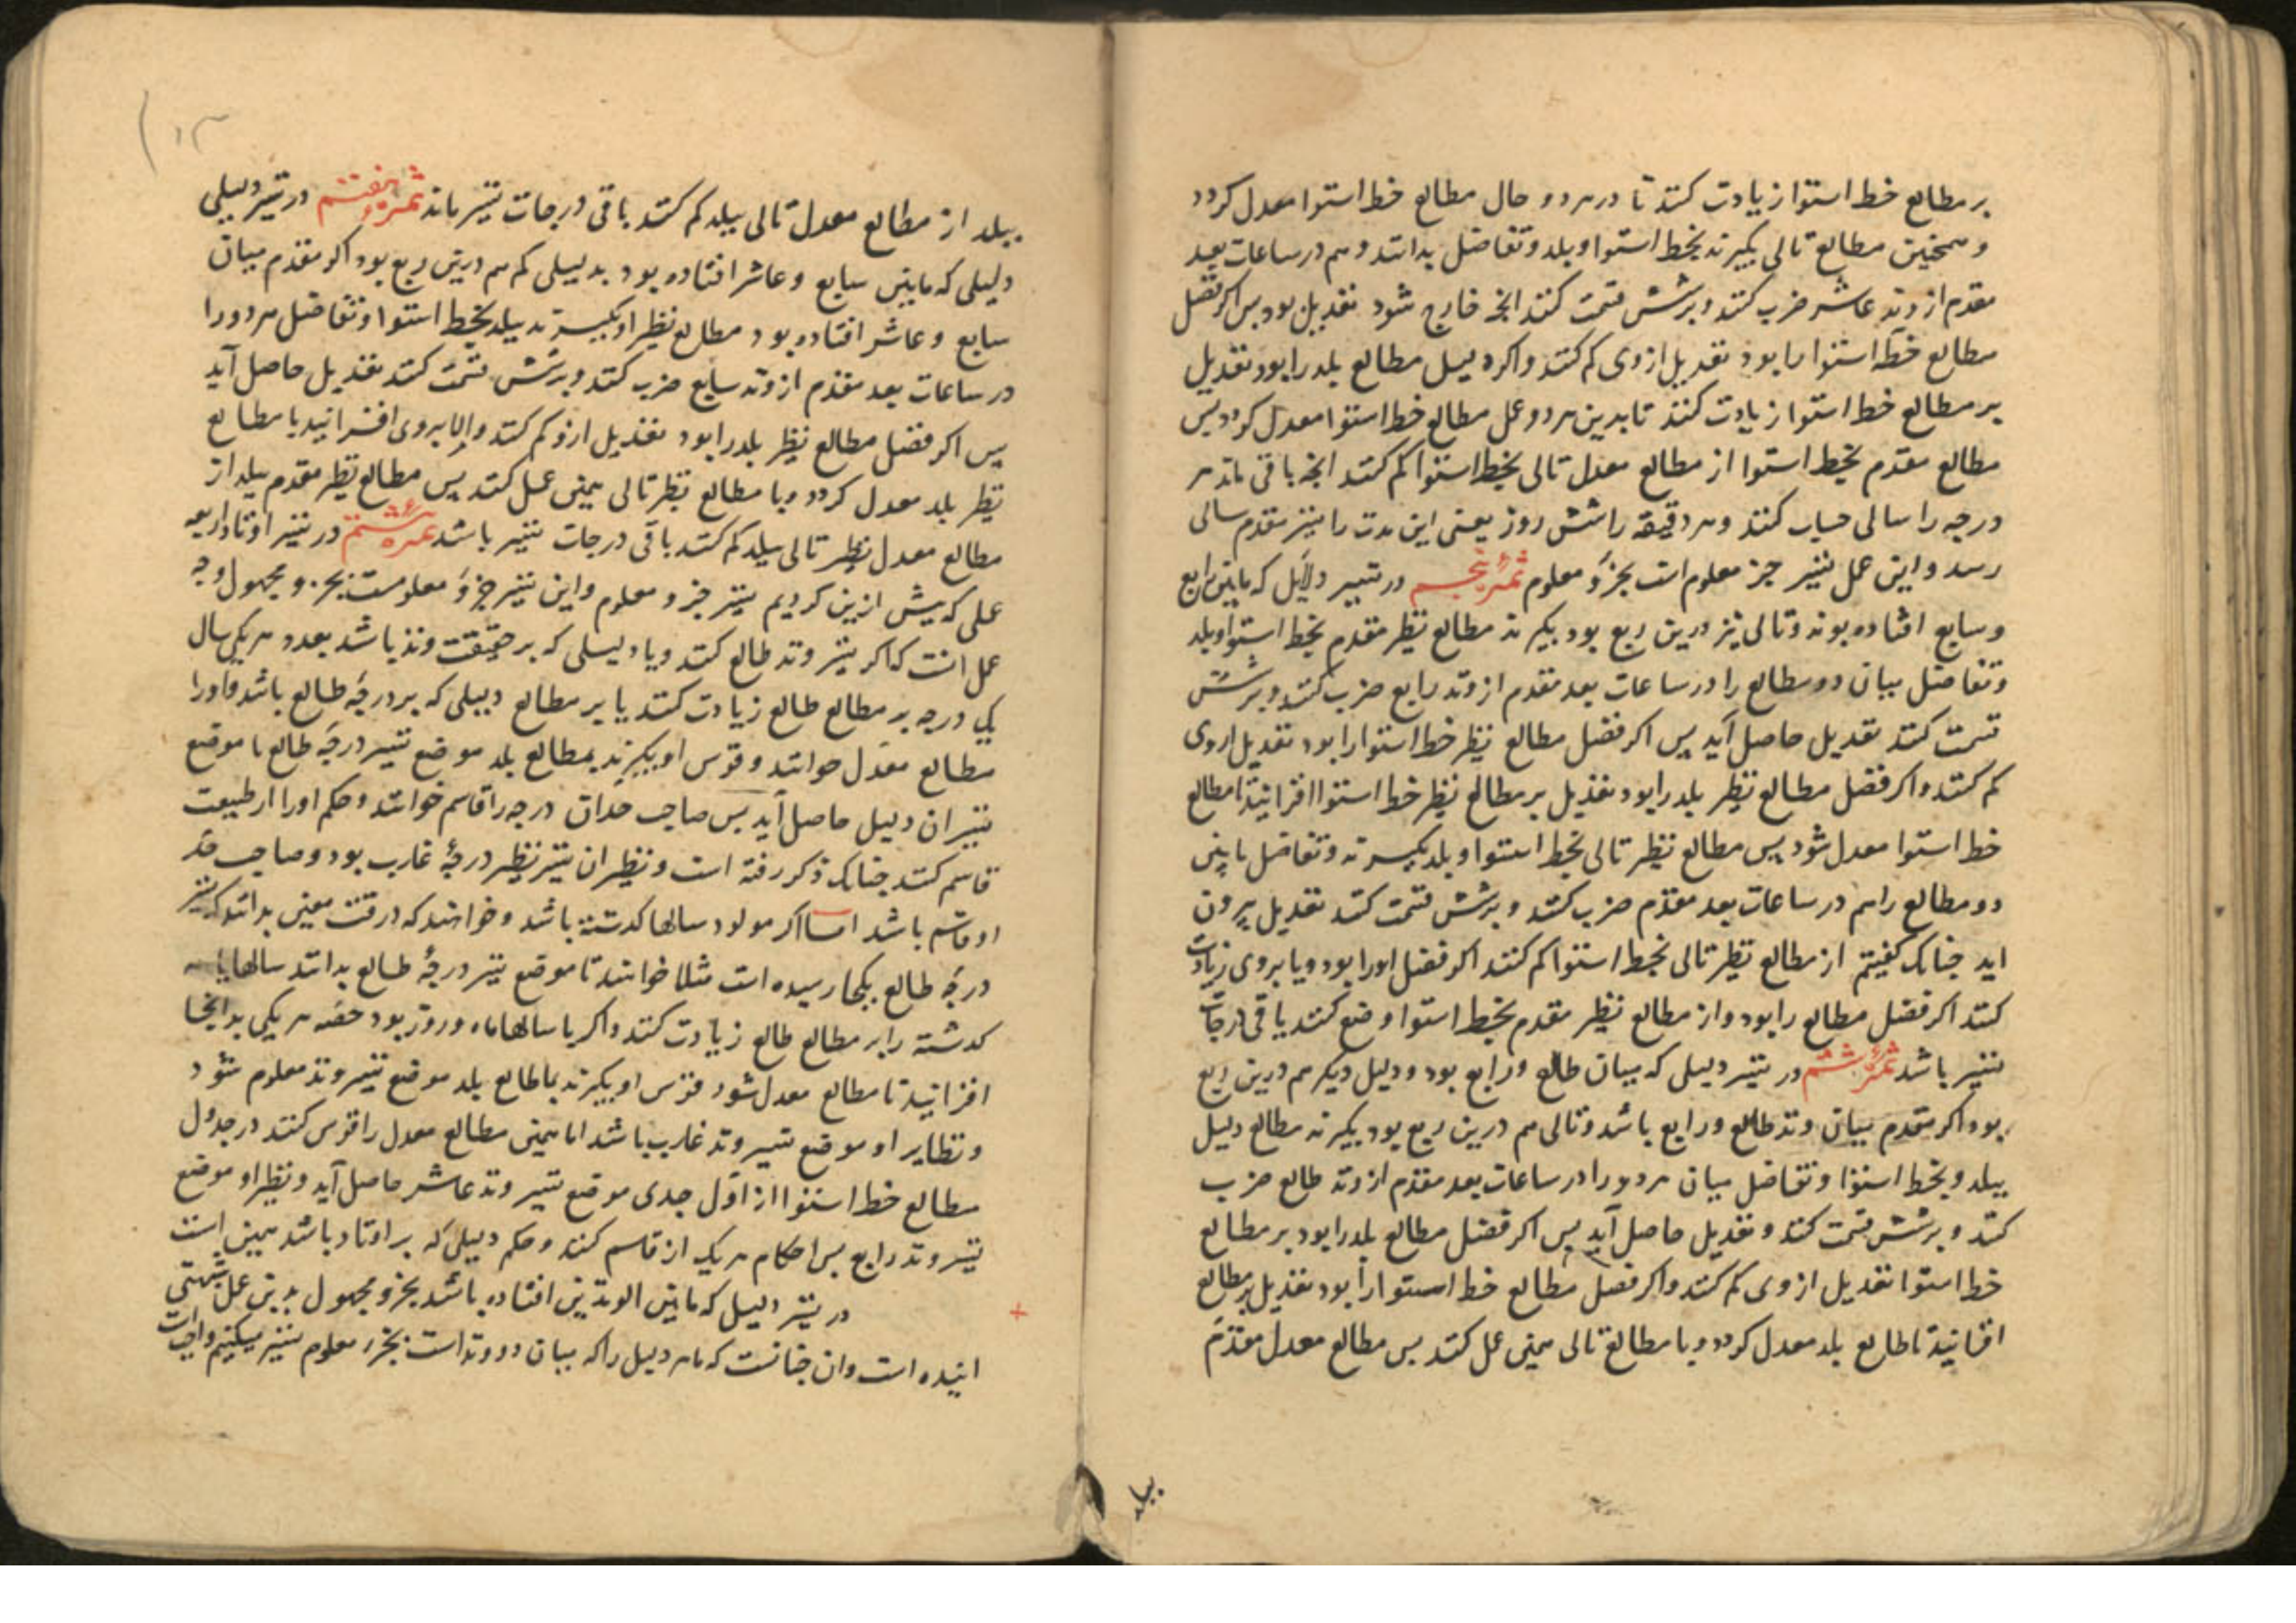 بر مطالع خط استوا زیادت کنند تا در هر دو حال مطالع خط استوا معدل کردد
و همچنین مطالع تالی بکیرند بخط استوا و بلد و تفاضل بدانند و هم در ساعات بعد
مقدم از وتد عاشر ضرب کنند و بر شش قسمت کنند انچه خارج شود تعدیل بود پس اکر فضل
مطالع خط استوا را بود تعدیل از وی کم کنند و اکر دلیل مطالع بلد را بود تعدیل
بر مطالع خط استوا زیادت کنند تا بدین هر دو عمل مطالع خط استوا معدل کردد پس
مطالع مقدم بخط استوا از مطالع معدل تالی بخط استوا کم کنند انچه باقی ماند هر
درجه را سالی حساب کنند و هر دقیقه را شش روز یعنی این مدت را مسیر مقدم سالی
رسد و این عمل تسیر جز معلوم است بجزو معلوم ثمره پنجم در تسییر دلایل که مابین رابع
و سابع افتاده بوند و تالی نیز درین ربع بود بکیرند مطالع نظر مقدم بخط استوا و بلد
و تفاضل میان دو مطالع را در ساعات بعد مقدم از وتد رابع ضرب کنند و بر شش
قسمت کنند تعدیل حاصل آید پس اکر فضل مطالع نظیر خط استوا را بود تعدیل از وی
کم کنند و اکر فضل مطالع نظیر بلد را بود تعدیل بر مطالع نظیر خط استوا افزایند تا مطالع
خط استوا معدل شود پس مطالع نظیر تالی بخط استوا و بلد بکیرند و تفاضل مابین
دو مطالع را هم در ساعات بعد مقدم ضرب کنند و بر شش قسمت کنند تعدیل بیرون
اید چنانک کفتیم از مطالع نظیر تالی بخط استوا کم کنند اکر فضل او را بود و یا بر وی زیادت
کنند اکر فضل مطالع را بود و از مطالع نظیر مقدم بخط استوا وضع کنند باقی درجات
تسیر باشد ثمره ششم در تسیر دلیلی که میان طالع و رابع بود و دلیل دیکر هم درین ربع
بود اکر مقدم میان وتد طالع و رابع باشد و تالی هم درین ربع بود بکیرند مطالع دلیل
ببلد و بخط استوا و تفاضل میان هر دو را در ساعات بعد مقدم از وتد طالع ضرب
کنند و بر شش قسمت کنند و تعدیل حاصل آید پس اکر فضل مطالع بلد را بود بر مطالع
خط استوا تعدیل از وی کم کنند و اکر فضل مطالع خط استوا را بود تعدیل بر مطالع
افزایند تا طالع بلد معدل کردد و با مطالع تالی همین عمل کنند پس مطالع معدل مقدم
ببلد
ببلد از مطالع معدل تالی ببلد کم کنند باقی درجات تسیر ماند ثمره هفتم در تسیر دلیلی
دلیلی که مابین سابع و عاشر افتاده بود بدلیلی کم هم درین ربع بود اکر مقدم میان
سابع و عاشر افتاده بود مطالع نظیر او بکیرند ببلد بخط استوا و تفاضل هر دو را
در ساعات بعد مقدم از وتد سابع ضرب کنند و بر شش قسمت کنند تعدیل حاصل آید
پس اکر فضل مطالع نظیر بلد را بود تعدیل ازو کم کنند و الا بر وی افزایند با مطالع
نظیر بلد معدل کردد و با مطالع نظر تالی همین عمل کنند پس مطالع نظیر مقدم ببلد از
مطالع معدل نظیر تالی ببلد کم کنند باقی درجات تسیر باشد ثمره هشتم در تسیر اوتاد اربعه
عملی که پیش ازین کردیم تسیر جزو معلوم و این تسیر جزو معلومست بجزو مجهول وجه
عمل انست که اکر تسیر وتد طالع کنند و یا دلیلی که بر حقیقت وتد باشد بعدد هر یکی سال
یک درجه بر مطالع طالع زیادت کنند یا بر مطالع دلیلی که بر درجهٔ طالع باشد و او را
مطالع معدل خوانند و قوس او بکیرند بمطالع بلد موضع تسیر درجهٔ طالع یا موضع
تسیر ان دلیل حاصل آید پس صاحب حد ان درجه را قاسم خوانند و حکم او را از طبیعت
قاسم کنند چنانک ذکر رفته است و نظیر ان تسیر نظیر درجهٔ غارب بود و صاحب حد
او قاسم باشد اما اکر مولود سالها کدشته باشد و خواهند که در وقت معین بدانند که تسیر
درجه طالع بکجا رسیده است مثلا خواهند تا موضع تسیر درجهٔ طالع بدانند سالها
کدشته را بر مطالع طالع زیادت کنند و اکر با سالها ماه و روز بود حصه هر یکی بدانجا
افزایند تا مطالع معدل شود قوس او بکیرند بمطالع بلد موضع تسیر وتد معلوم شود
و نظایر او موضع تسیر وتد غارب باشد اما همین مطالع معدل را قوس کنند در جدول
مطالع خط استوا از اول جدی موضع تسیر وتد عاشر حاصل آید و نظیر او موضع
تسیر وتد رابع پس احکام هر یک از قاسم کنند و حکم دلیلی که بر اوتاد باشد همین است
در تسیر دلیل که مابین الوتدین افتاده باشد بجزو مجهول بدین عمل
اینده است و ان چنانست که ما هر دلیل را که میان دو وتد است بجزو معلوم تسیر میکنیم